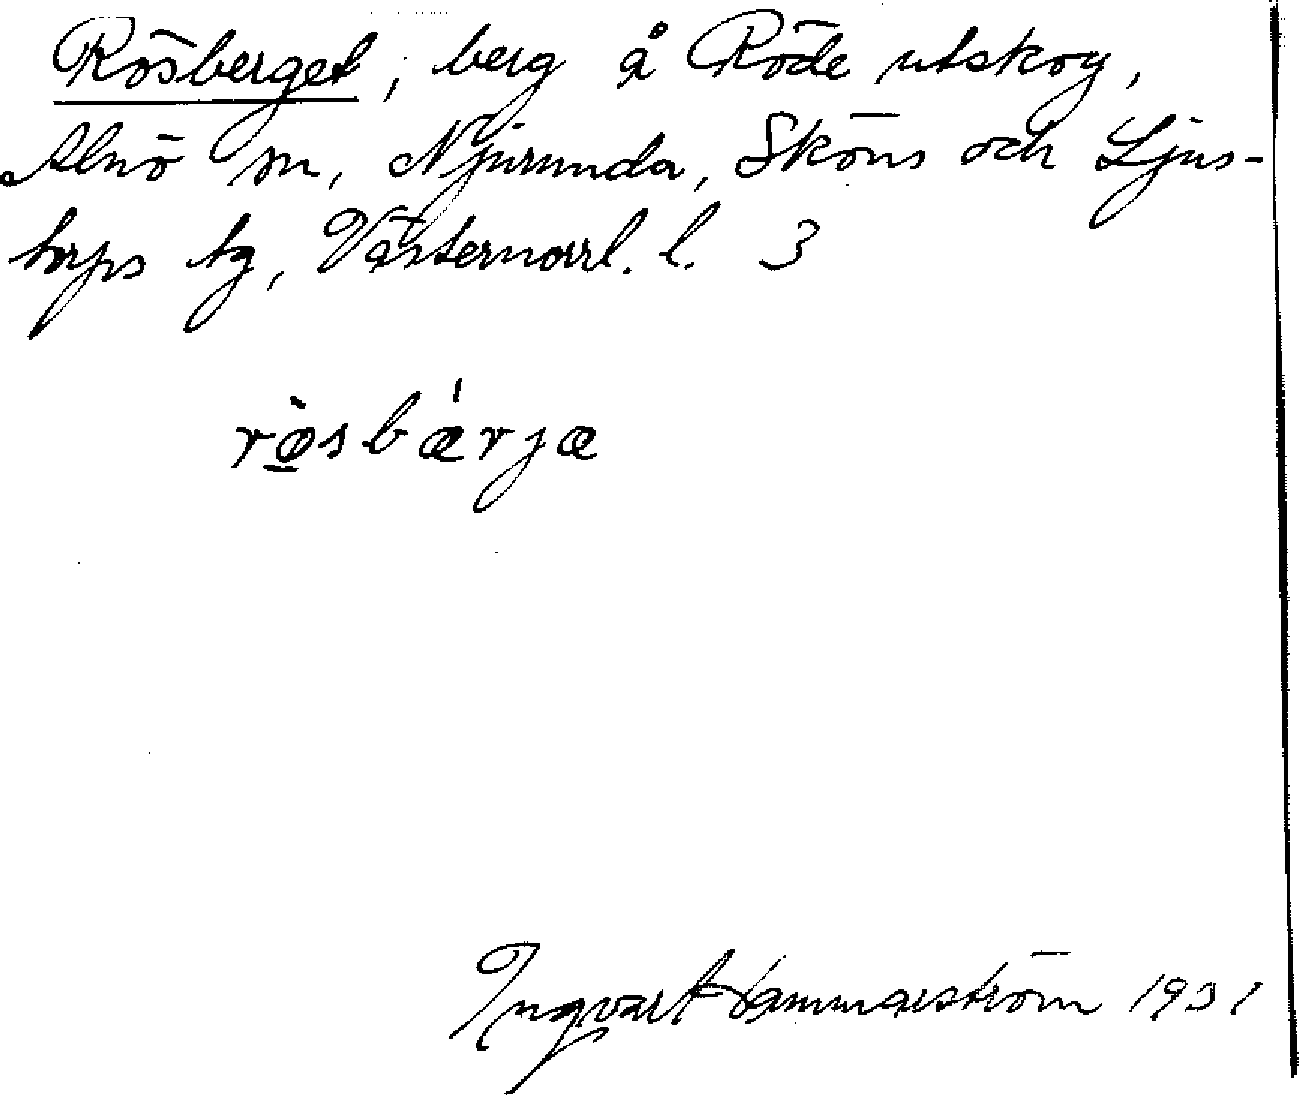 Rösberget, berg å Röde utskog,
Alnö sn, Njurunda, Sköns och Ljus-
torps tg, Västernorrl. l. 3
rö̀sbǽrjæ
Ingvart Hammarström 1931